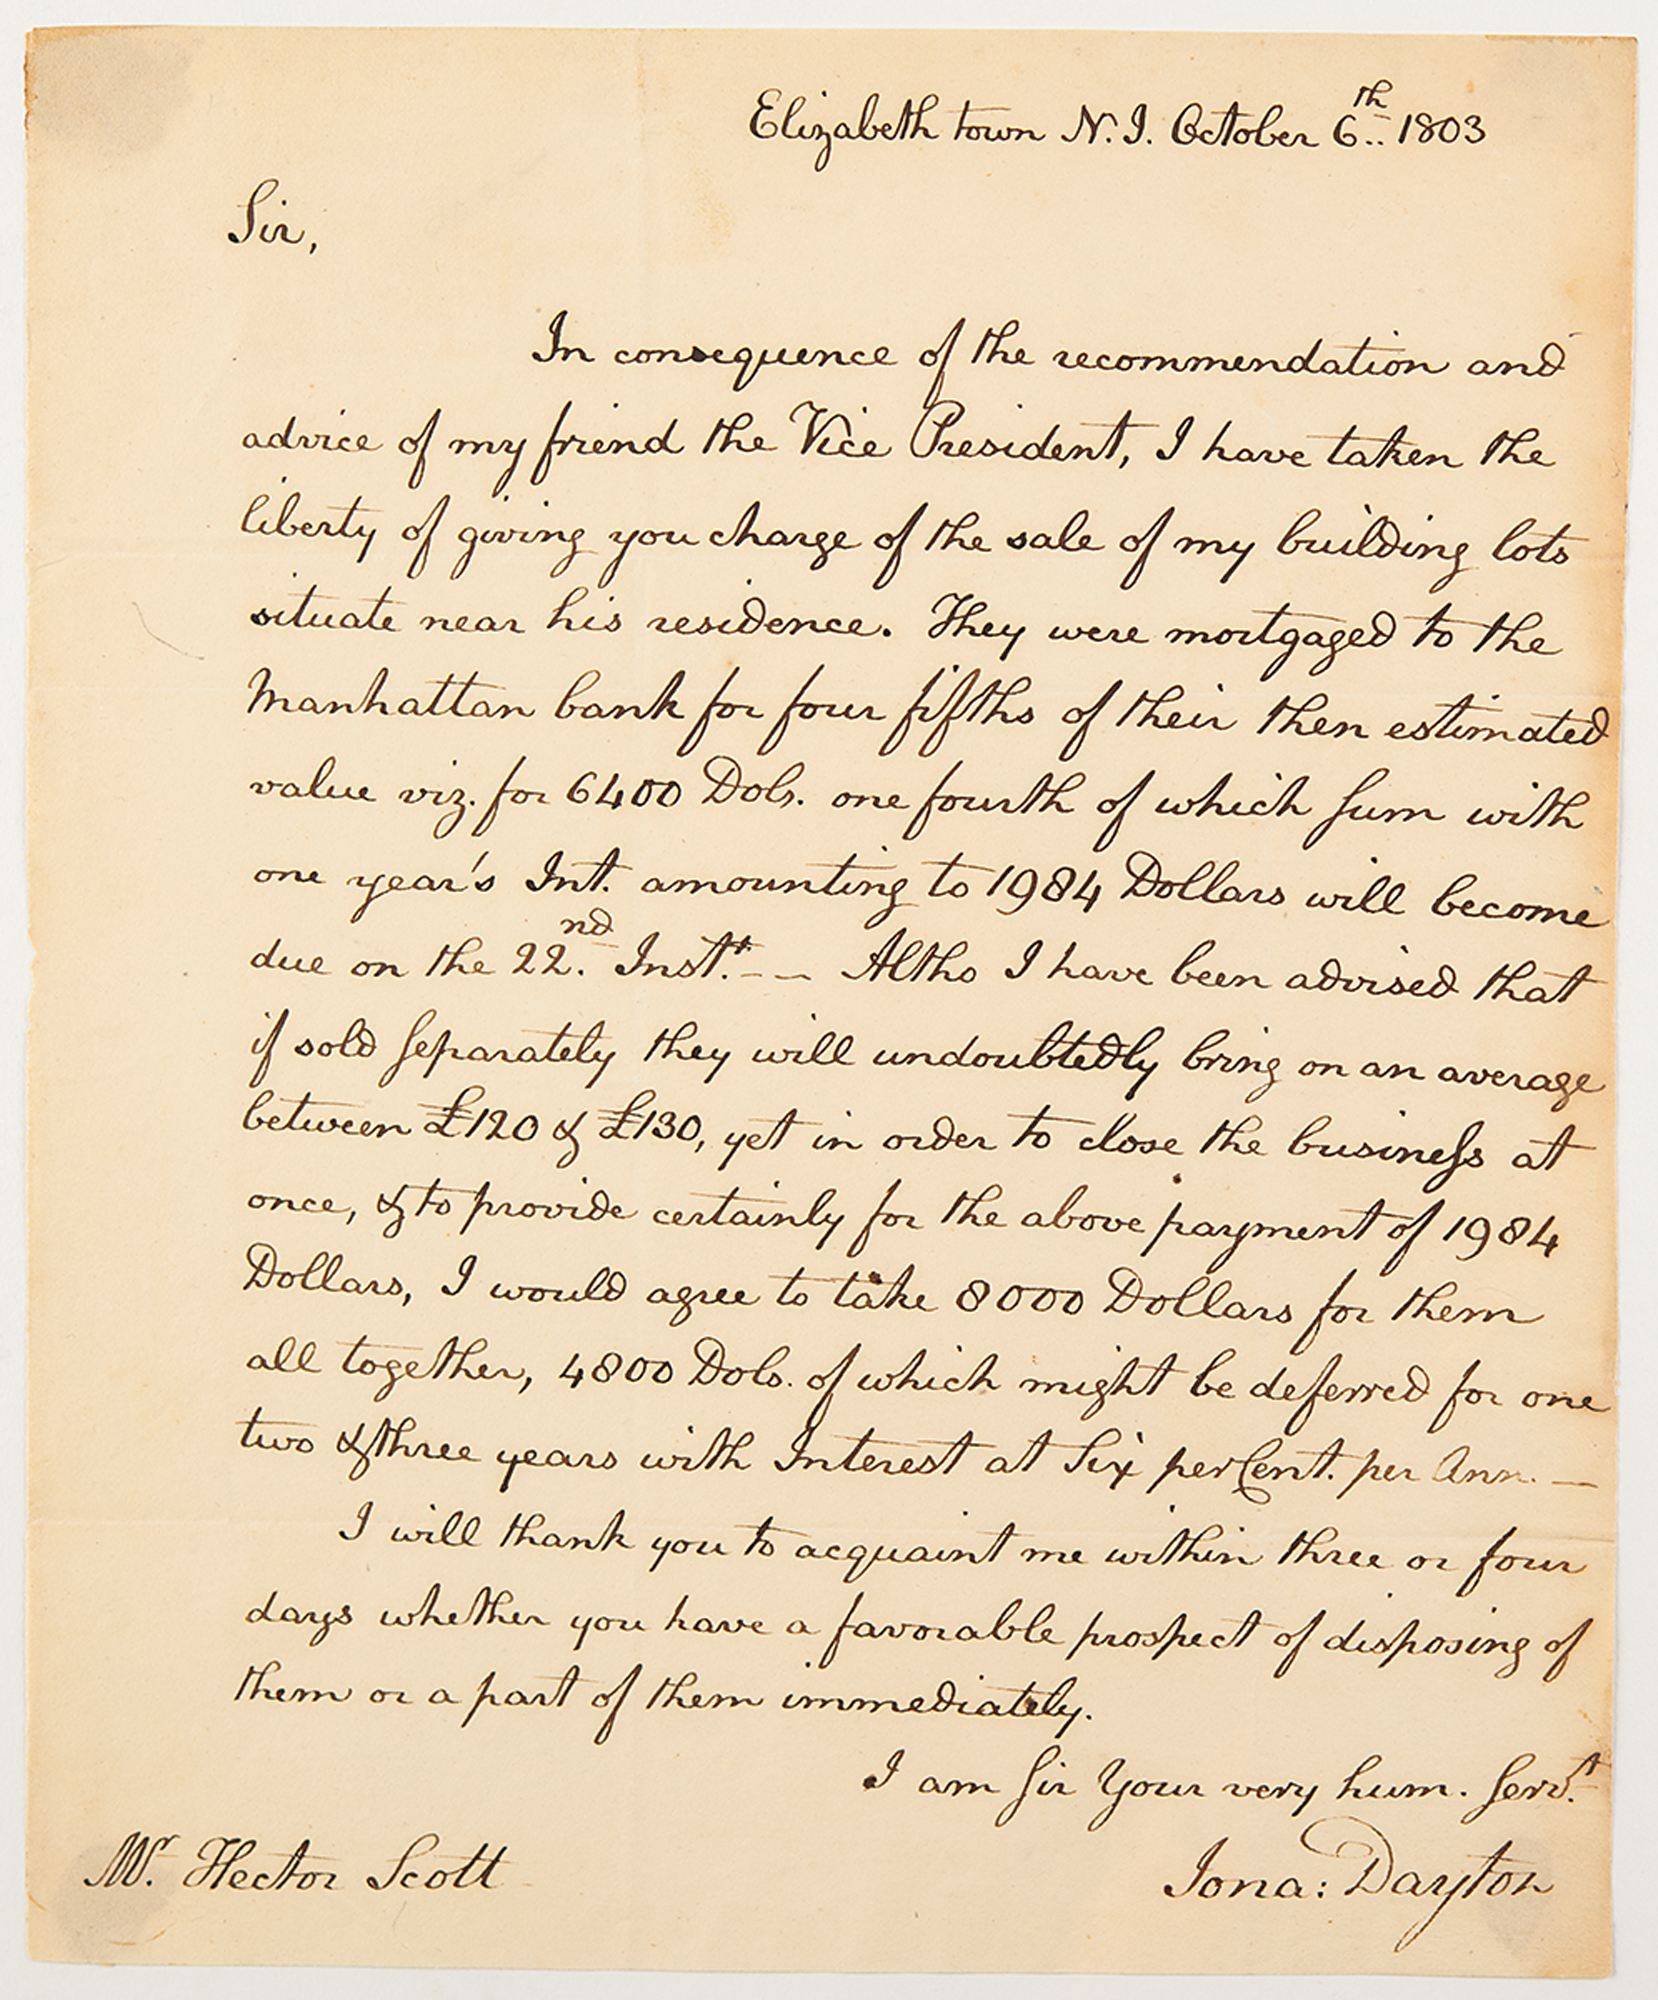 Elizabeth town N.J. October 6th 1803
Sir,
In consequence of the recommendation and
advice of my friend the Vice President, I have taken the
liberty of giving you charge of the sale of my building lots
situate near his residence. They were mortgaged to the
Manhattan bank for four fifths of their then estimated
value viz. for 6400 Dols. one fourth of which sum with
one year's Int. amounting to 1984 Dollars will become
due on the 22nd. Inst.t - - Altho I have been advised that
if sold separately they will undoubtedly bring on an average
between £120 & £130, yet in order to close the business at
once, & to provide certainly for the above payment of 1984
Dollars, I would agree to take 8000 Dollars for them
all together, 4800 Dols. of which might be deferred for one
two & three years with Interest at Six per Cent. per Ann. —
I will thank you to acquaint me within three or four
days whether you have a favorable prospect of disposing of
them or a part of them immediately.
I am Sir Your very hum. Servt.
Jona: Dayton
Mr. Hector Scott